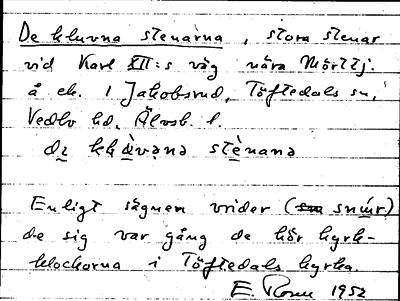 De kluvna stenarna, stora stenar
vid Karl XII:s väg nära Mörttj.
å eh. 1 Jakobsrud, Töftedals sn,
Vedbo hd, Älvsb. l.
də klὰvəna stènana
Enligt sägnen vrider (snúr)
de sig var gång de hör kyrk-
klockorna i Töftedals kyrka.
E. 1952